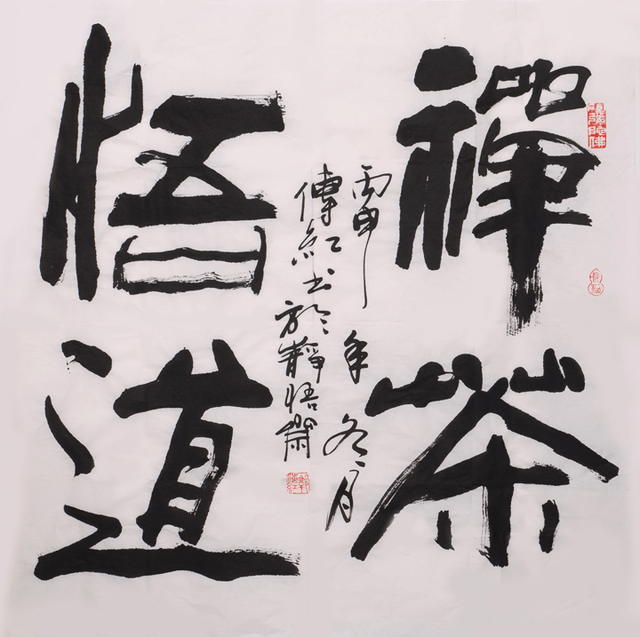 禪茶
悟道
丙申年冬月
傳紅书於靜悟齋